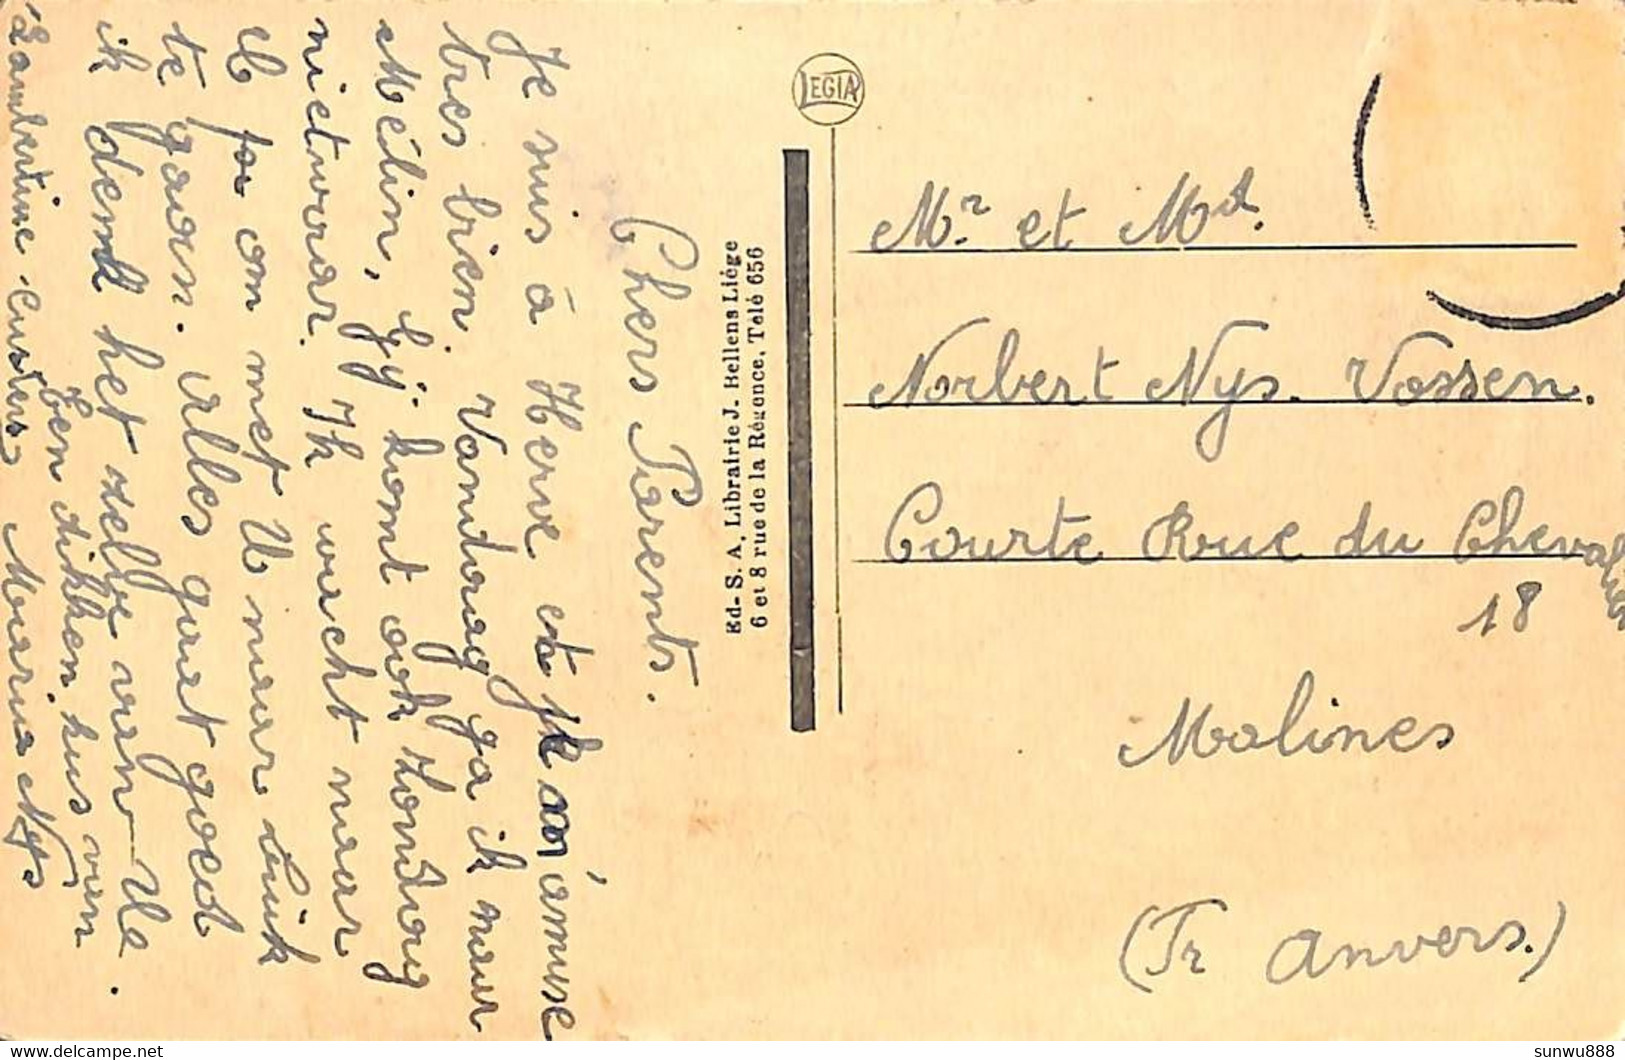 Chers Parents.
Je suis à Herve et je m'amuse
tres bien. Vandaag ga ik naar
Mélin, Gÿ komt ook Zondag
niet waar. Ik wacht naar
U om met U naar Luik
te gaan. Alles gaat goed
ik denk het zelve van Ue.
Een dikken kus van
Lambertine Custers Maria Nys
LEGIA
Ed- S. A. Librairie J. Bellens Liége
6 et 8 rue de la Régence. Télé 656
Mr. et Md.
Norbert Nys. Vossen.
Courte Rue du Chevalier
18
Malines
(Pr Anvers.)
sunwu888